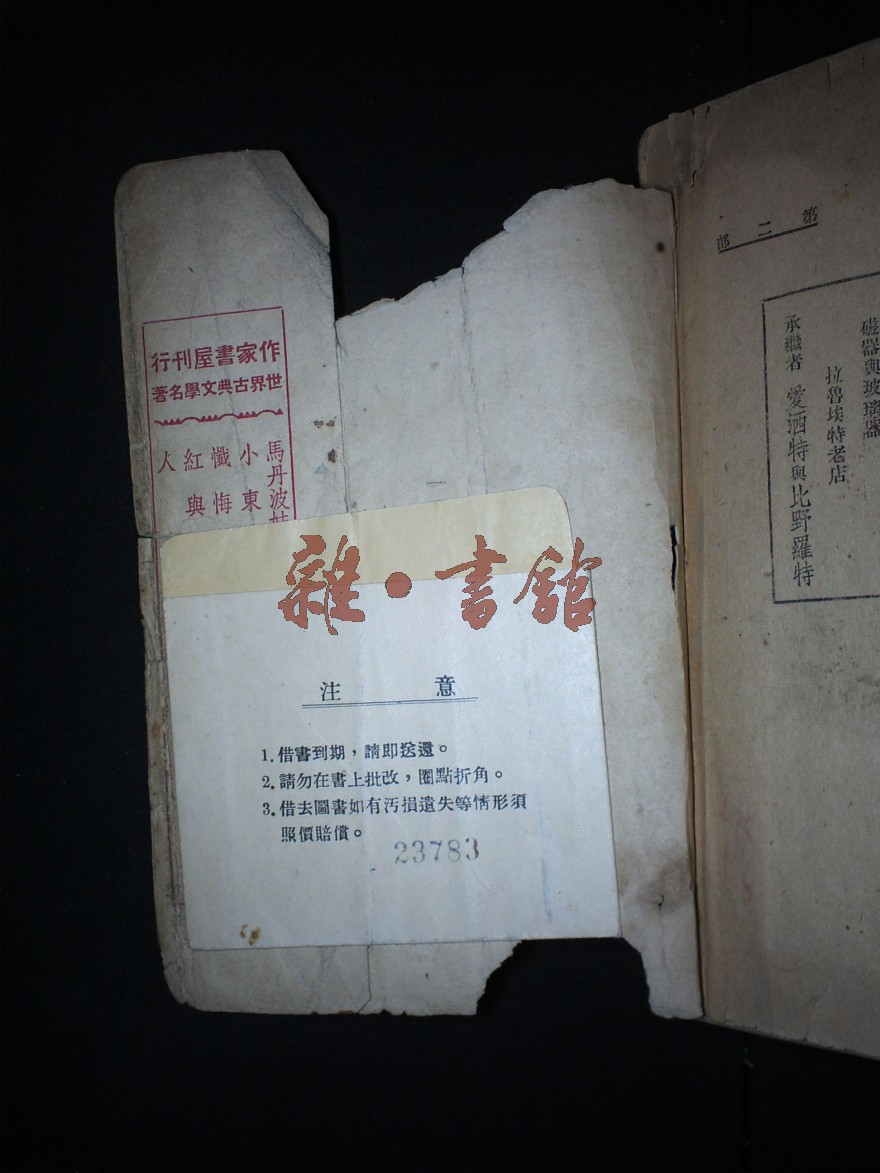 作家書屋刊行
世界古典文學名著
馬丹波
小東
懺悔
紅與
人
雜·書館
注意
1.借書到期，請即送還。
2.請勿在書上批改，圈點折角。
3.借去圖書如有汚損遺失等情形須
照價賠償。
23783
第二部
磁器與玻璃器
拉魯埃特老店
承繼者 愛洒特與比野羅特